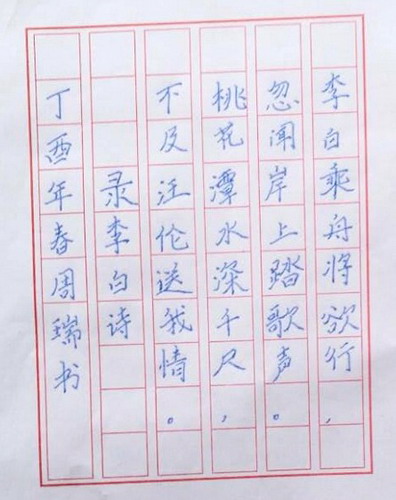 李白乘舟将欲行，
忽闻岸上踏歌声。
桃花潭水深千尺，
不及汪伦送我情。
录李白诗
丁酉年春周瑞书